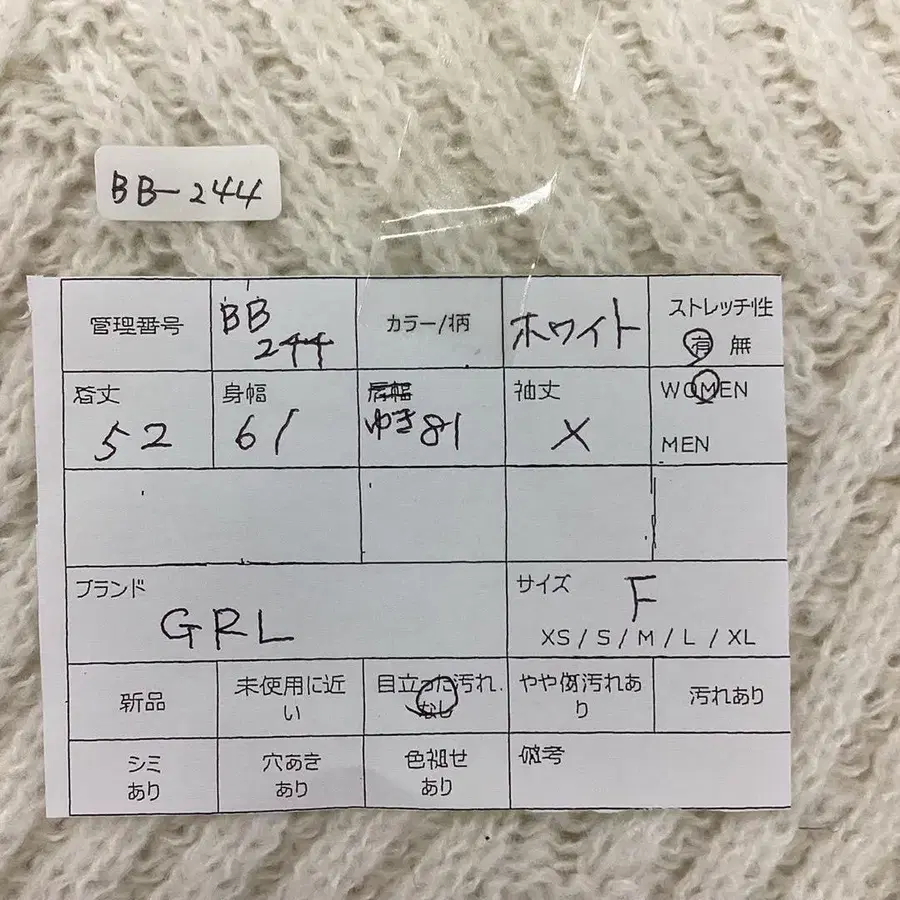 BB-244
管理番号
BB
244
カラー/柄
ホワイト
ストレッチ性
有 無
着丈
52
身幅
61
肩幅
ゆき81
袖丈
X
WOMEN
MEN
ブランド
GRL
サイズ
F
XS / S / M / L / XL
新品
未使用に近
い
目立った汚れ
なし
やや傷汚れあ
り
汚れあり
シミ
あり
穴あき
あり
色褪せ
あり
備考